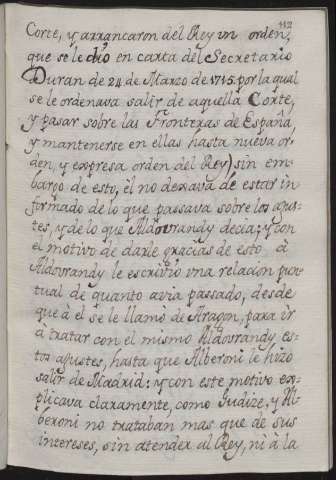 112
Corte, y arrancaron del Rey vn orden,
que se le dió en carta del Secretario
Duran de 24 de Marzo de 1715 por la qual
se le ordenava salir de aquella Corte,
y pasar sobre las Fronteras de España,
y mantenerse en ellas hasta nueva or-
den, y expresa orden del Rey) sin em-
bargo de esto, él no dexava de estar in
formado de lo que passava sobre los ajus-
tes, y de lo que Aldovrandy decia; y con
el motivo de darle gracias de esto à
Aldovrandy le escrivió vna relacion pun
tual de quanto avia passado, desde
que à èl se le llamó de Aragon, para ir
à tratar con el mismo Aldovrandy, es-
tos ajustes, hasta que Alberoni le hizo
salir de Madrid: y con este motivo ex-
plicava claramente, como Judize, y Al-
beroni no trataban mas que de sus
intereses, sin atender al Rey, ni à la